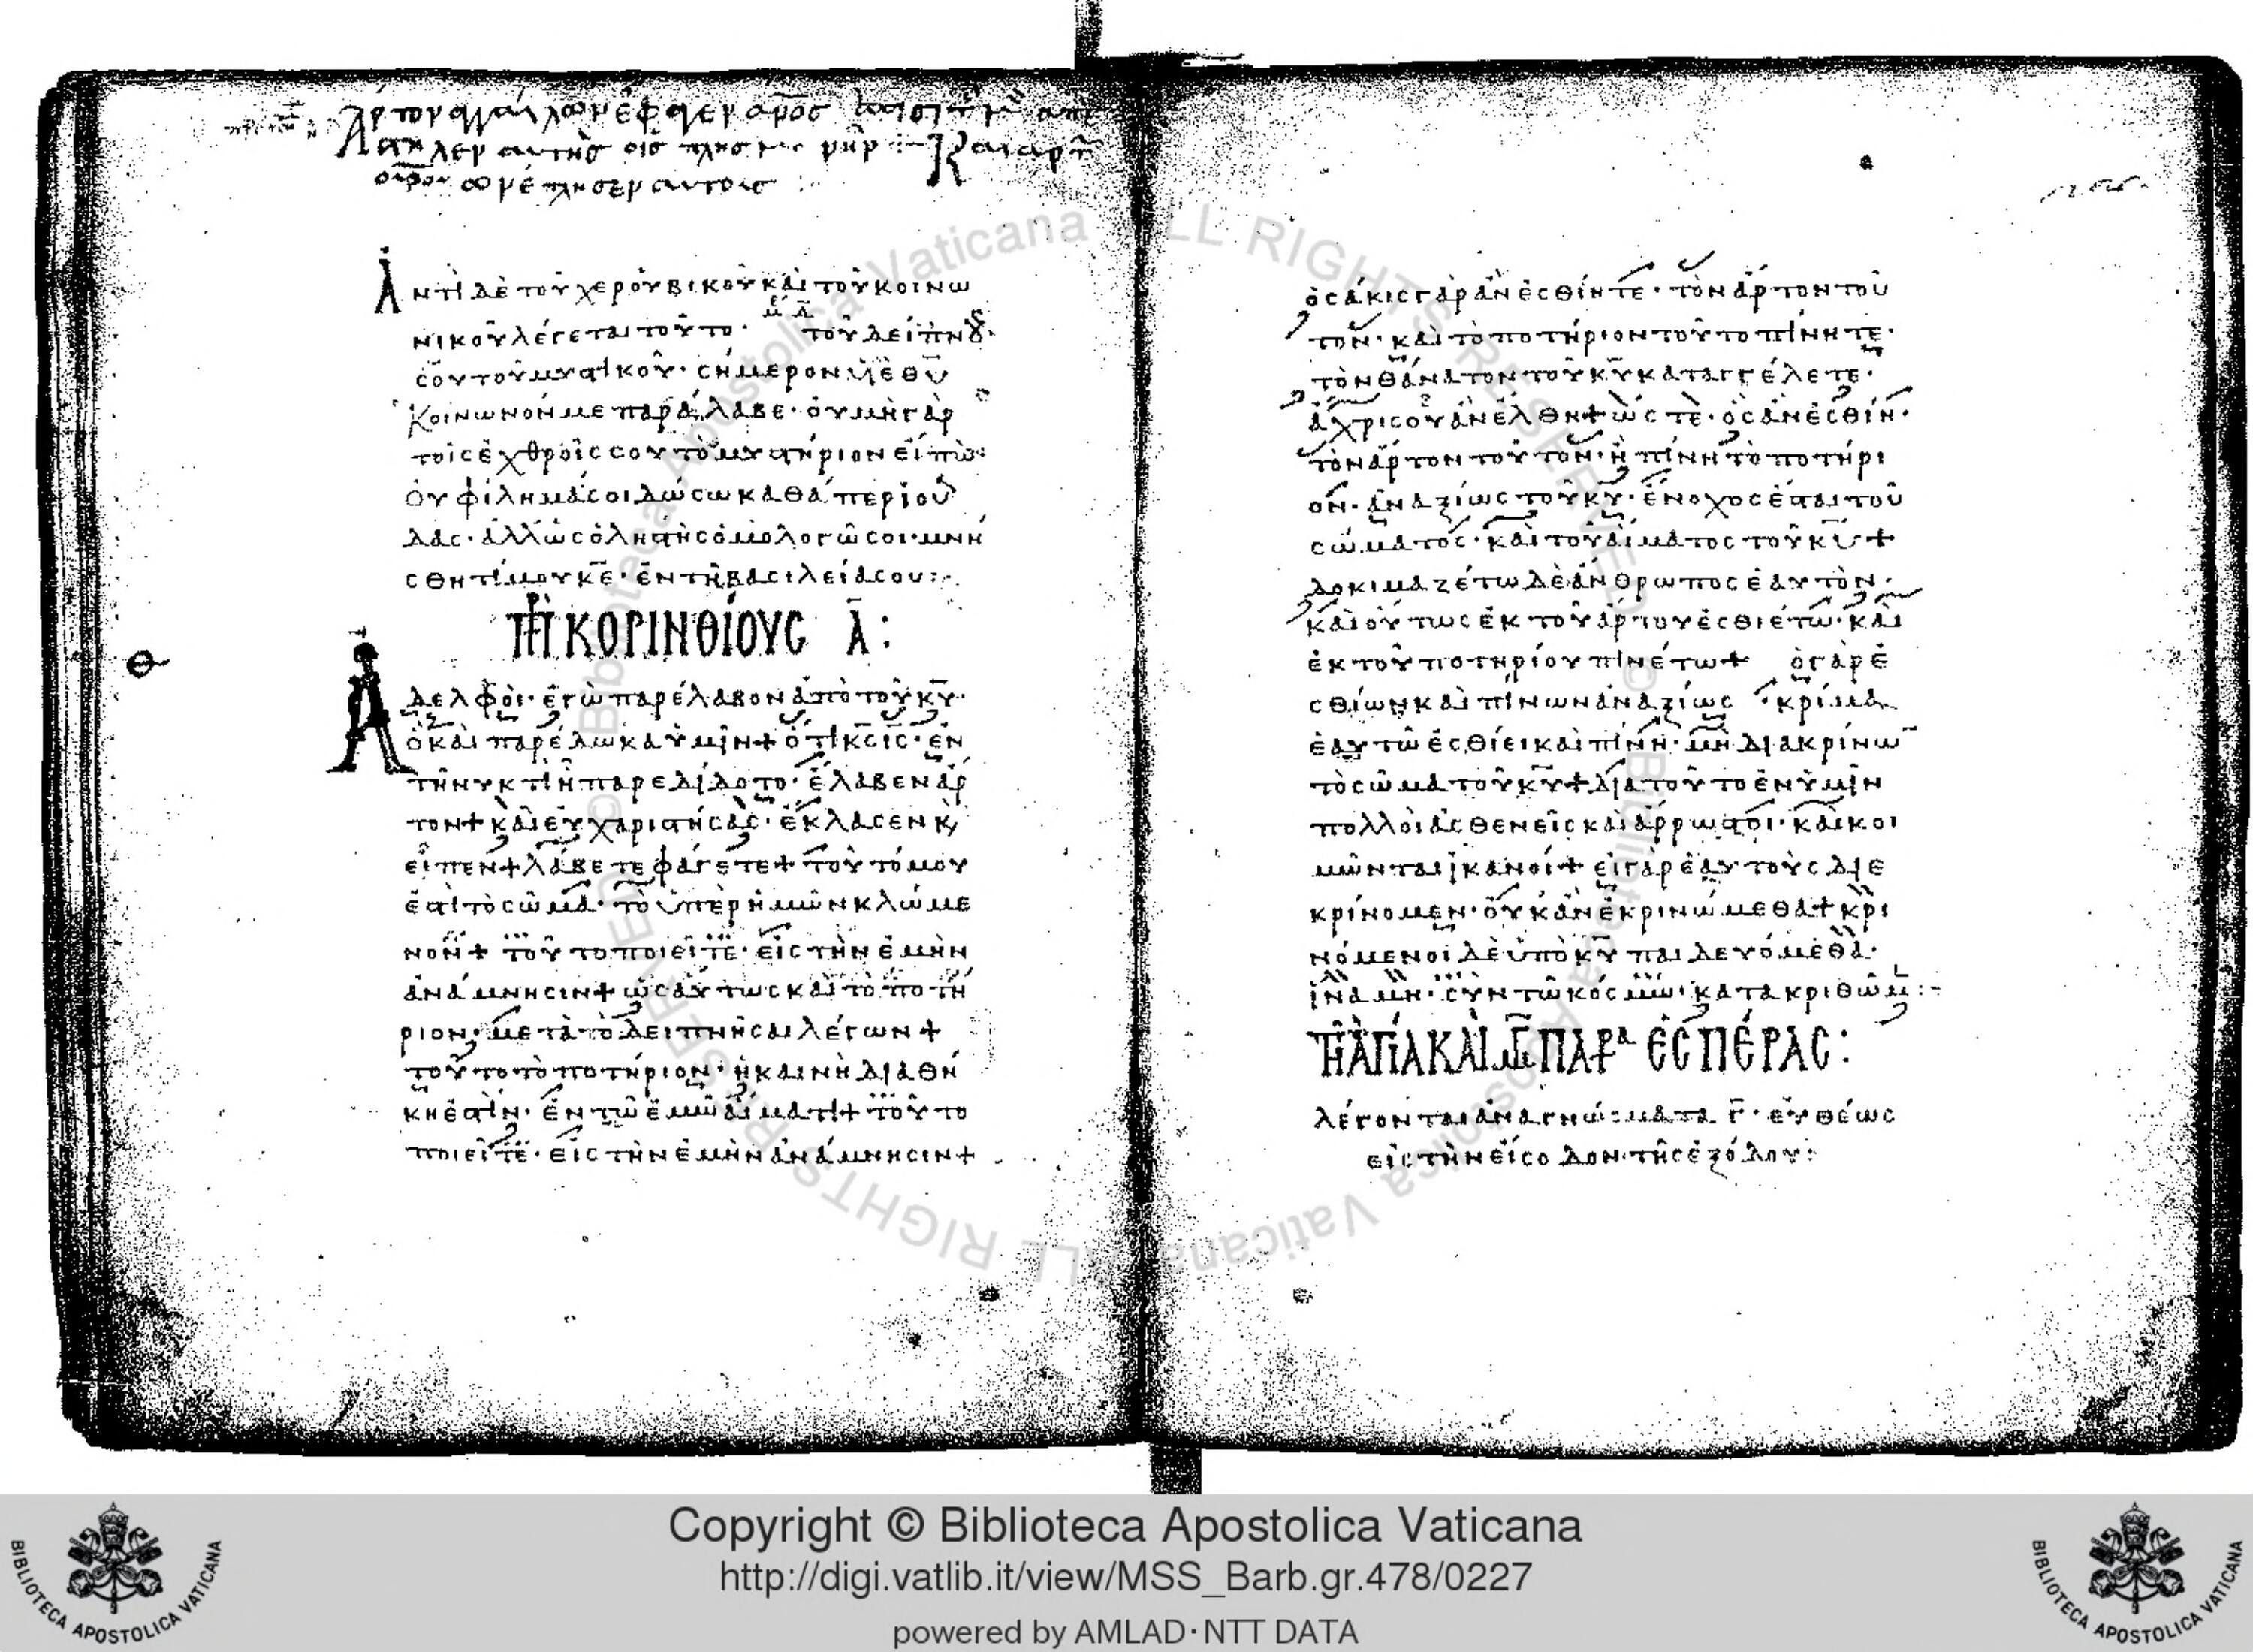 Ἀντὶ δὲ τοῦ χερουβικοῦ καὶ τοῦ κοινω
νικοῦ λέγεται τοῦτο· τοῦ δείπνου
σου τοῦ μυστικοῦ· σήμερον ὑιὲ θῦ
Κοινωνόν με παράλαβε· ὀυ μὴ γὰρ
τοῖς ἐχθροῖς σου τὸ μυστήριον εἴπω·
ὀυ φίλημά σοι δώσω καθάπερ ἰού
δας· ἀλλ' ὡς ὁ ληστὴς ὁμολογῶ σοι· μνή
σθητί μου κε̄· ἐν τῇ βασιλείᾳ σου:
ΠΡ ΚΟΡΙΝΘΙΟΥΣ Α̅:
Ἀδελφοὶ· ἐγὼ παρέλαβον ἀπὸ τοῦ κῡ·
ὃ καὶ παρέδωκα ὑμῖν + ὅτι κ̄ς ῑς· ἐν
τῇ νυκτὶ ᾗ παρεδίδοτο· ἔλαβεν ἄρ
τον + καὶ εὐχαριστήσας· ἔκλασεν κ̀
εἶπεν + λάβετε φάγετε + τοῦτό μου
ἐστὶ τὸ σῶμα· τὸ ὑπὲρ ἡμῶν κλώμε
νον + τοῦτο ποιεῖτε· εἰς τὴν ἐμὴν
ἀνάμνησιν + ὡσαύτως καὶ τὸ ποτή
ριον· μετὰ τὸ δειπνῆσαι λέγων +
τοῦτο τὸ ποτήριον· ἡ καινὴ διαθή
κη ἐστὶν· ἐν τῷ ἐμῷ αἵματι + τοῦτο
ποιεῖτε· εἰς τὴν ἐμὴν ἀνάμνησιν +
ὁσάκις γὰρ ἂν ἐσθίητε· τὸν ἄρτον τοῦ
τον· καὶ τὸ ποτήριον τοῦτο πίνητε·
τὸν θάνατον τοῦ κῡ καταγγέλετε·
ἄχρις οὗ ἂν ἔλθη + ὥστε· ὃς ἂν ἐσθίη·
τὸν ἄρτον τοῦτον· ἢ πίνη τὸ ποτήρι
ον· ἀναξίως τοῦ κῡ· ἔνοχος ἔσται τοῦ
σώματος· καὶ τοῦ αἵματος τοῦ κῡ +
δοκιμαζέτω δὲ ἄνθρωπος ἑαυτὸν·
καὶ οὕτως ἐκ τοῦ ἄρτου ἐσθιέτω· καὶ
ἐκ τοῦ ποτηρίου πινέτω + ὁ γὰρ ἐ
σθίων καὶ πίνων ἀναξίως · κρίμα
ἑαυτῷ ἐσθίει καὶ πίνη· μὴ διακρίνω̄
τὸ σῶμα τοῦ κῡ + διὰ τοῦτο ἐν ὑμῖν
πολλοὶ ἀσθενεῖς καὶ ἄρρωστοι· καὶ κοι
μῶνται ἱκανοί + εἰ γὰρ ἑαυτοὺς διε
κρίνομεν· οὐκ ἂν ἐκρινώμεθα + κρι
νόμενοι δὲ ὑπὸ κῡ παιδευόμεθα·
ἵνα μὴ· σὺν τῷ κόσμω· κατακριθῶμ:-
ΤΗ ΑΓΙΑ ΚΑΙ Μ ΠΑΡ ΕΣΠΕΡΑΣ:
λέγονται ἀναγνώσματα γ̄· εὐθέως
εἰς τὴν εἴσοδον τῆς ἐξόδου:
Copyright © Biblioteca Apostolica Vaticana
http://digi.vatlib.it/view/MSS_Barb.gr.478/0227
powered by AMLAD·NTT DATA
BIBLIOTECA APOSTOLICA VATICANA
BIBLIOTECA APOSTOLICA VATICANA